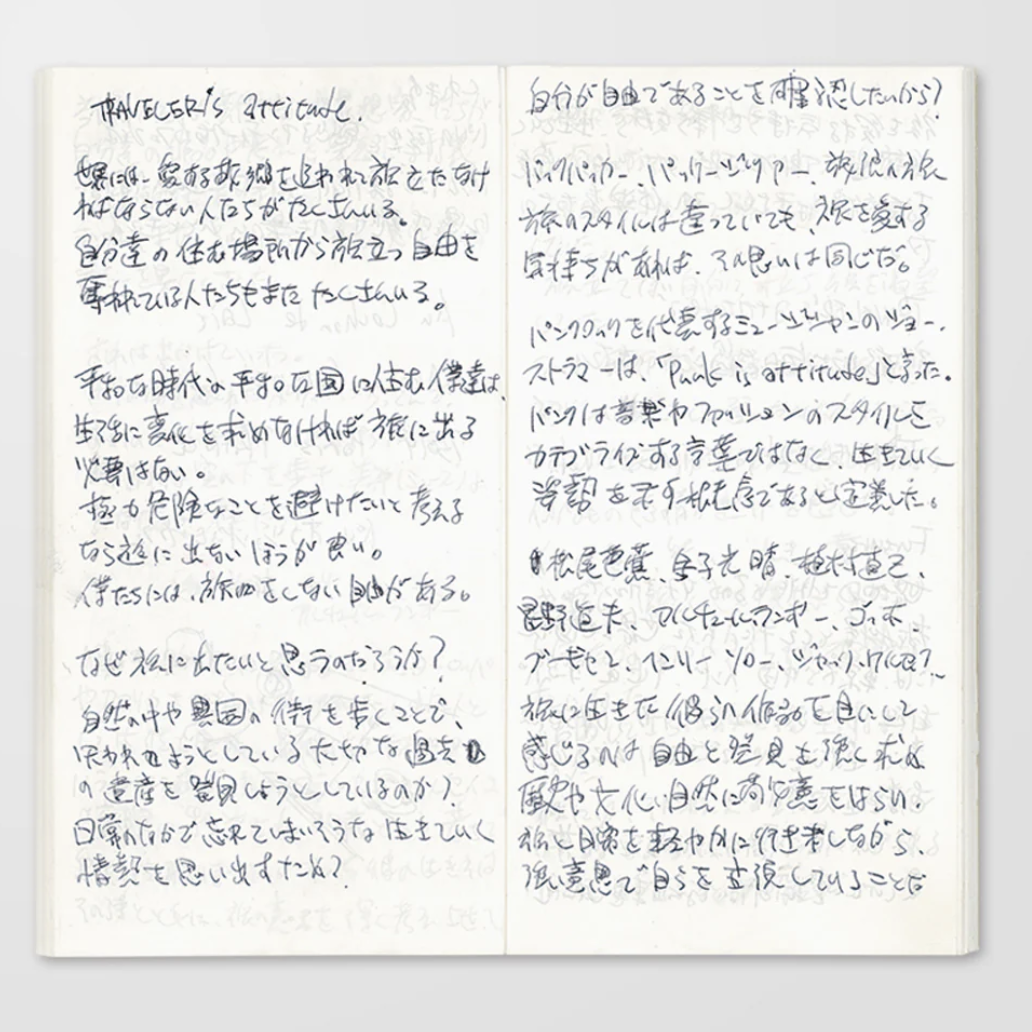 TRAVELER's attitude.
世界には、愛する故郷を追われて旅立たなけ
ればならない人たちがたくさんいる。
自分達の住む場所から旅立つ自由を
奪われている人たちもまたたくさんいる。
平和な時代の平和な国に住む僕達は、
生活に変化を求めなければ旅に出る
必要はない。
極力危険なことを避けたいと考える
なら旅に出ないほうが良い。
僕たちには、旅をしない自由がある。
なぜ旅に出たいと思うのだろうか?
自然の中や異国の街を歩くことで、
失われようとしている大切な過去
の遺産を発見しようとしているのか?
日常のなかで忘れてしまいそうな生きていく
情熱を思い出すため?
自分が自由であることを確認したいから?
バックパッカー、パッケージツアー、放浪の旅
旅のスタイルは違っていても、旅を愛する
気持ちがあれば、その思いは同じだ。
パンクロックを代表するミュージシャンのジョー・
ストラマーは、「Punk is attitude.」と言った。
パンクは音楽やファッションのスタイルを
カテゴライズする言葉ではなく、生きていく
姿勢を示す概念であると定義した。
松尾芭蕉、金子光晴、植村直己、
星野道夫、アルチュールランボー、ゴッホ、
ブーギセン、ヘンリー ソロー、ジャック・ケルアック
旅に生きた彼らの作品を目にして
感じるのは自由と発見を強く求め
歴史や文化、自然に敬意をはらい、
旅と日常を軽やかに行き来しながら、
強い意思で自らを立脚していることだ